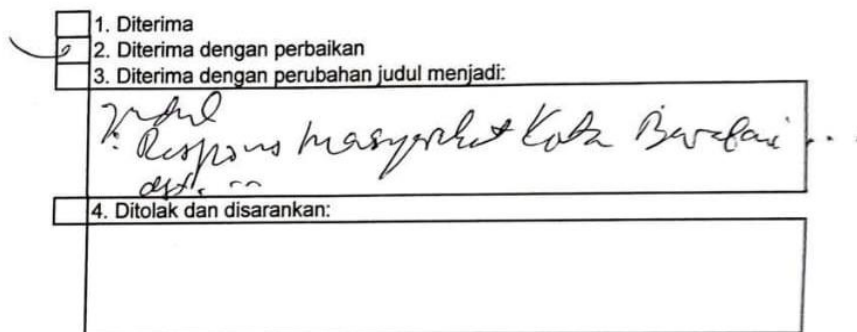 1. Diterima
2. Diterima dengan perbaikan
3. Diterima dengan perubahan judul menjadi:
Judul
: Respons Masyarakat Kota Barabai ...
dst. ...
4. Ditolak dan disarankan: